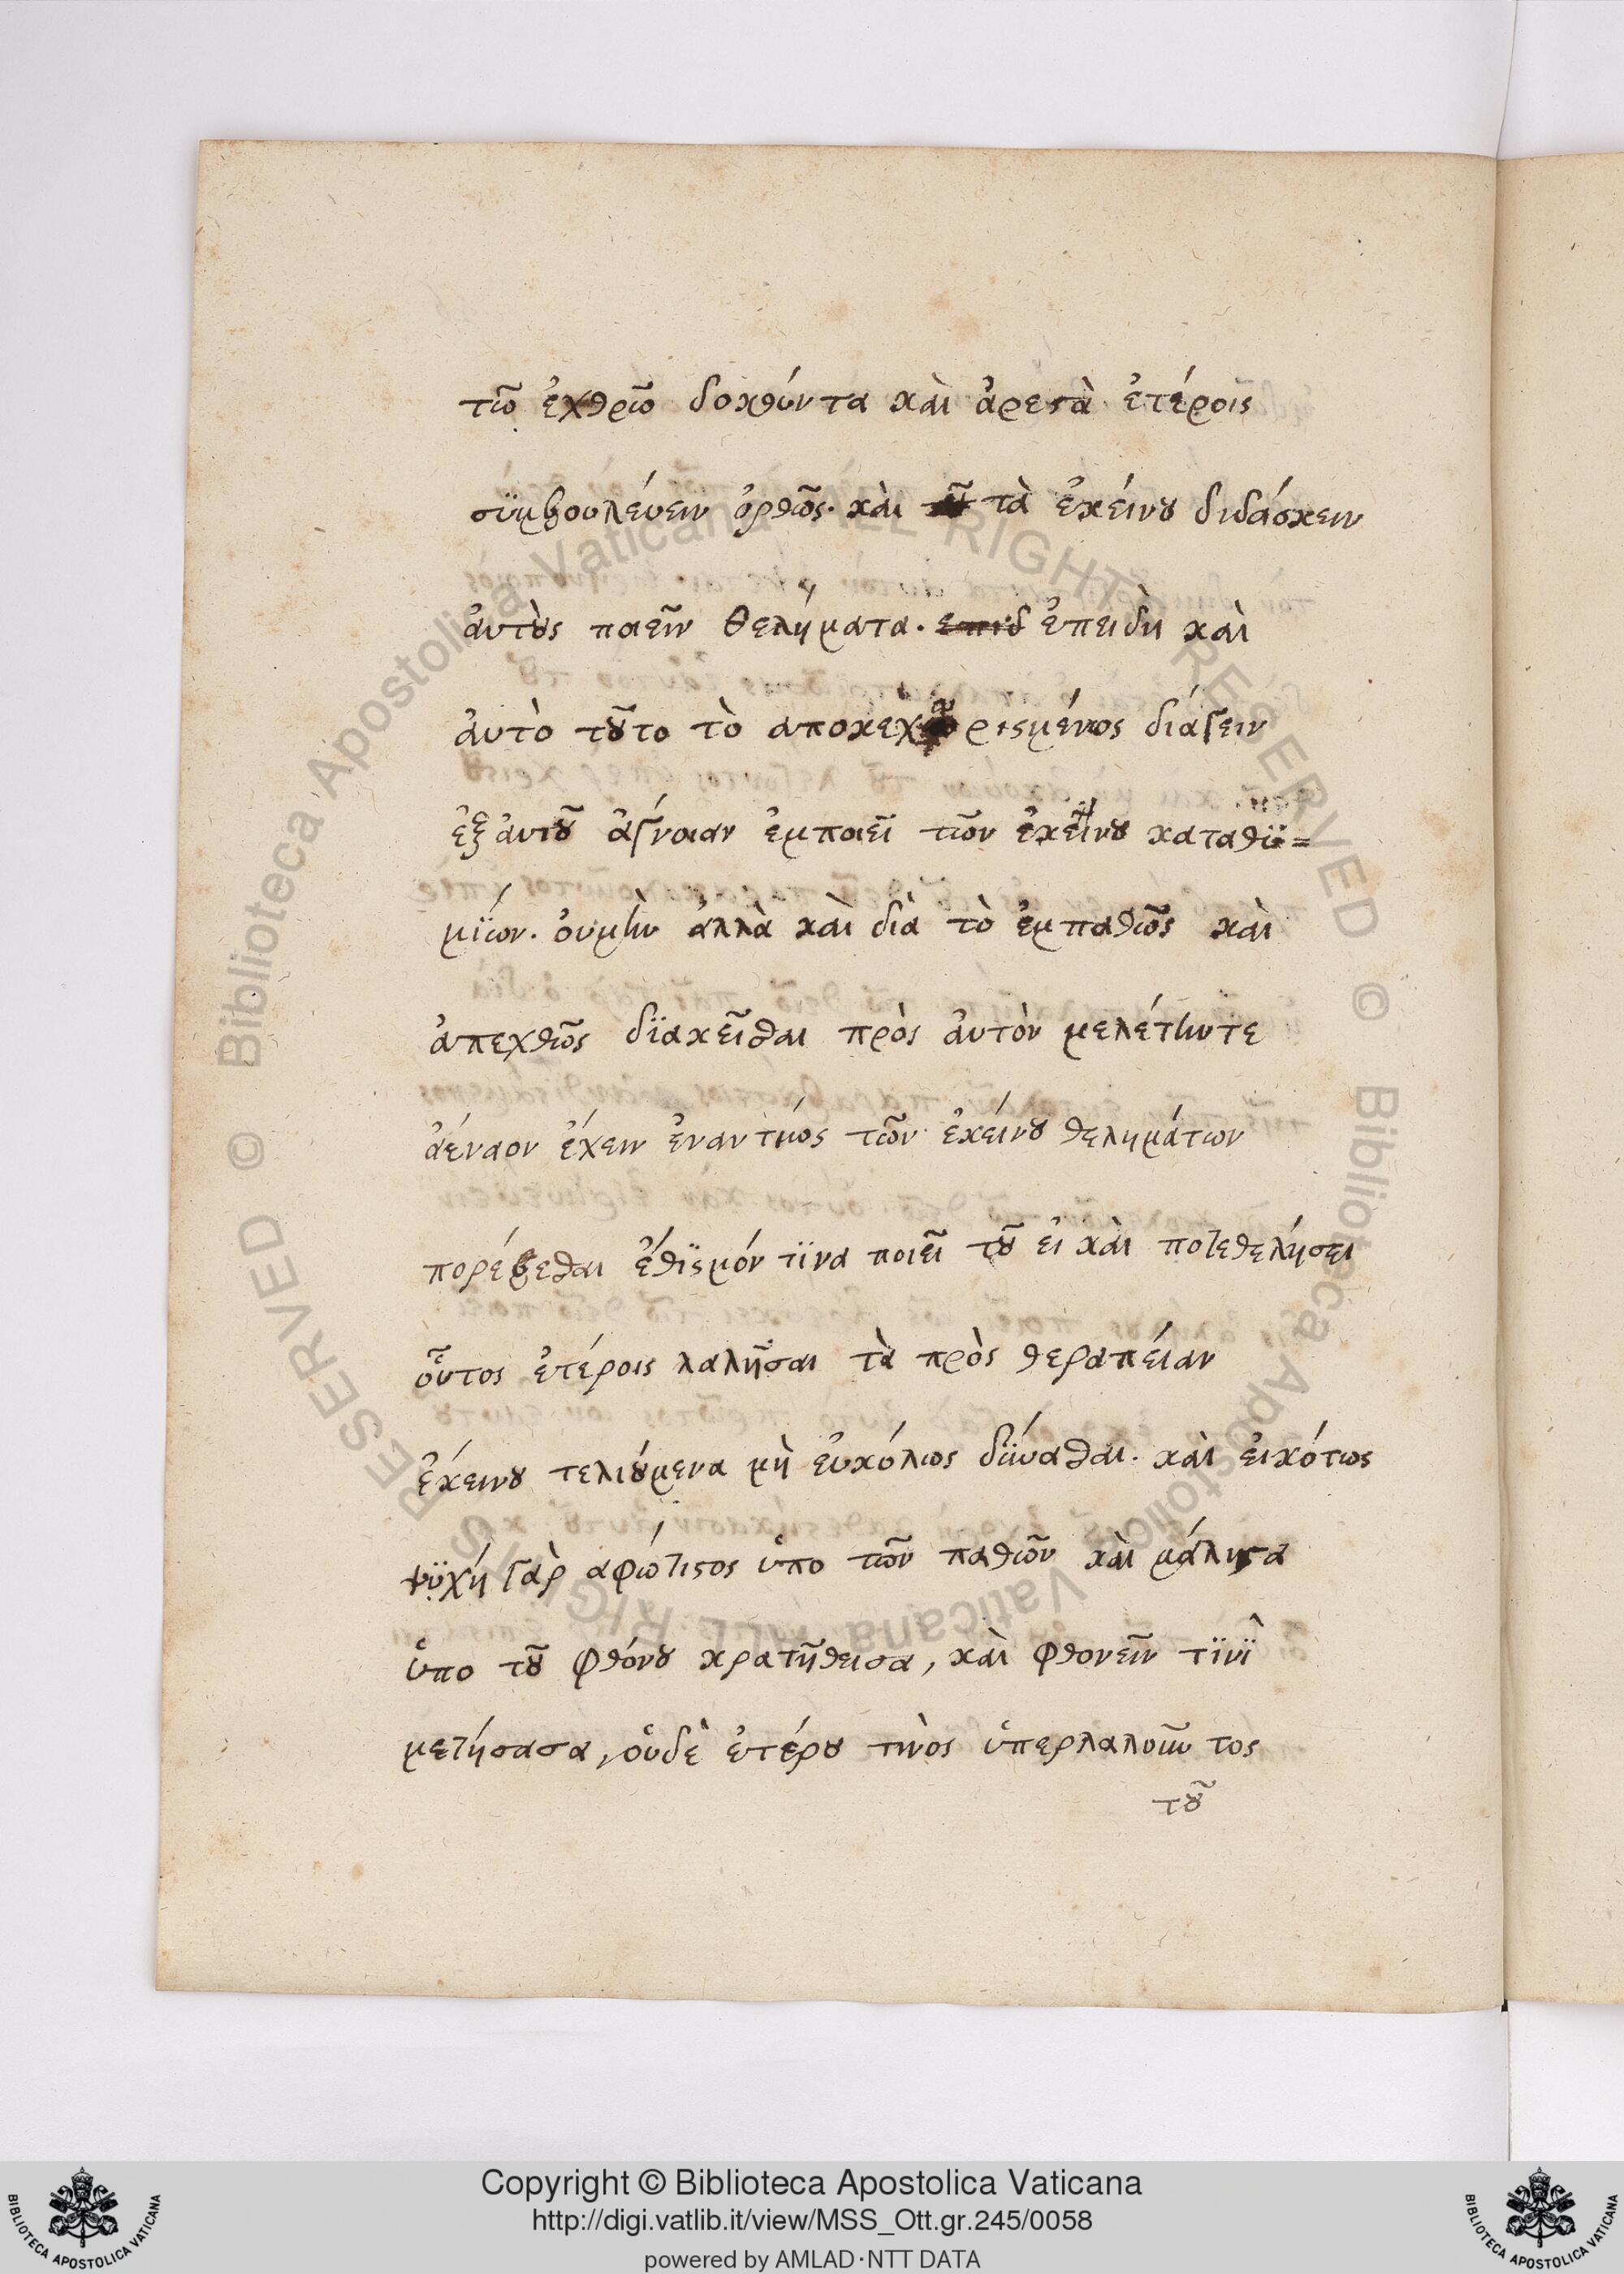 τῶ ἐχθρῶ δοκοῦντα καὶ ἀρεστὰ ἑτέροις
σϋμβουλέυειν ὀρθῶς. καὶ τὰ ἐκέινου διδάσκειν
ἀυτοὺς ποιεῖν θελήματα. επιδ ἐπειδὴ καὶ
ἀυτὸ τοῦτο τὸ αποκεχωρισμένος διάγειν
ἐξ ἀυτοῦ ἄγνοιαν ἐμποιεῖ τῶν ἐκείνου καταθϋ=
μϊων. ὀυμὴν ἀλλὰ καὶ διὰ τὸ ἐμπαθῶς καὶ
ἀπεχθῶς δϊακεῖσθαι πρὸς ἀυτὸν μελέτηντε
ἀέναον ἔχειν ἐναντίως τῶν ἐκέινου θελημάτων
πορέυεσθαι ἐθϊσμόν τϊνα ποιεῖ τοῦ εἰ καὶ ποτεθελήσει
οὗτος ἑτέροις λαλῆσαι τὰ πρὸς θεραπέιαν
ἐκεινου τελούμενα μὴ ἐυκόλως δϋνασθαι. καὶ εἰκότως
ψϋχή γὰρ αφώτιστος ὑπο τῶν παθῶν καὶ μάλιστα
ὑπο τοῦ φθόνου κρατηθεισα, καὶ φθονεῖν τϊνὶ
μετήσασα, οὐδὲ ἑτέρου τινὸς ὑπερλαλοῦντος
τοῦ
Biblioteca Apostolica Vaticana ALL RIGHTS RESERVED ©
Biblioteca Apostolica Vaticana ALL RIGHTS RESERVED ©
Copyright © Biblioteca Apostolica Vaticana
http://digi.vatlib.it/view/MSS_Ott.gr.245/0058
powered by AMLAD·NTT DATA
BIBLIOTECA APOSTOLICA VATICANA
BIBLIOTECA APOSTOLICA VATICANA